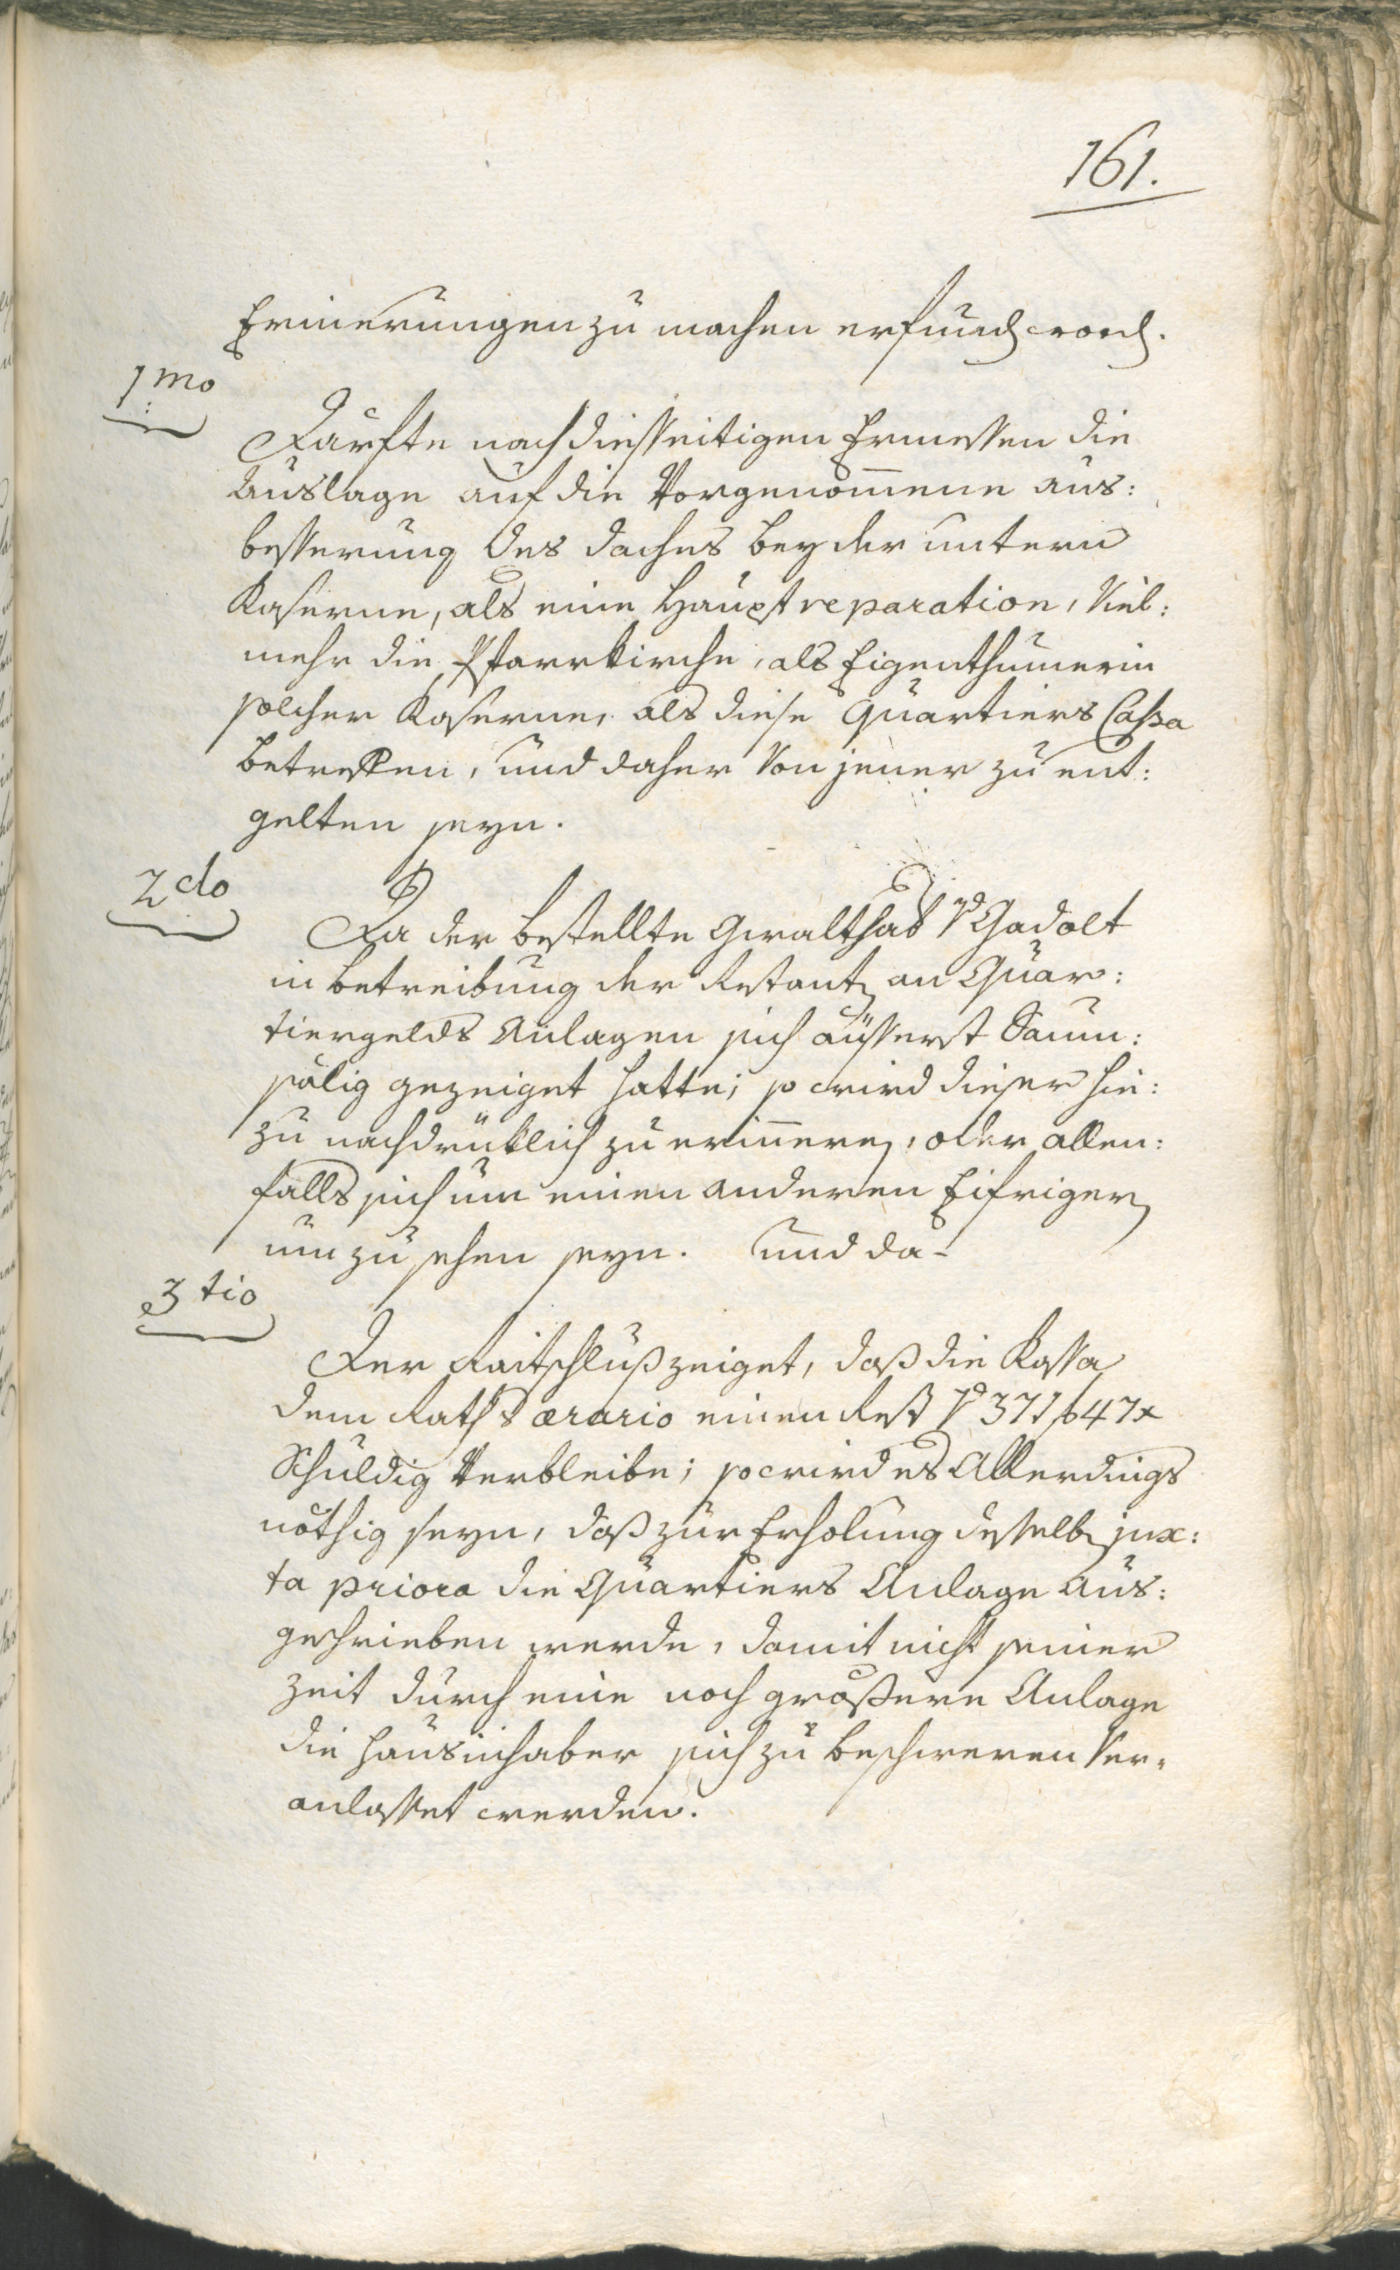 161.
Erinerungen zu machen erfund word.
1mo
Därfte nach diesseitigen Ermessen die
Auslage auf die Vorgenom̄ene aus:
besserung des Daches bey der untern
Kaserne, als eine Hauptreparation, Viel:
mehr die Pfarrkirche, als Eigenthümerin
solcher Kaserne, als diese Quartiers Cassa
betreffen, und daher Von jener zu ent:
gelten seyn.
2do
Da der bestellte Gwalthab Gadolt
in betreibung der Restant an Quar:
tiergelds Anlagen sich äusserst Saum:
sälig gezeiget hatte; so wird dieser hie:
zu nachdrüklich zu erinneren, oder allen:
falls sich um einen anderen Eifrigen
um zu sehen seyn. Und da-
3tio
Der Raitschluß zeiget, daß die Kassa
dem Raths ærario einen Rest 371 f 47 x
Schuldig Verbleibe; so wird es Allerdings
nöthig seyn, daß zur Erholung desselb jux:
ta priora die Quartiers Anlage Aus:
geschrieben werde, damit nicht seiner
Zeit durch eine noch größere Anlage
die Hausinhaber sich zu beschweren Ver-
anlasset werden.